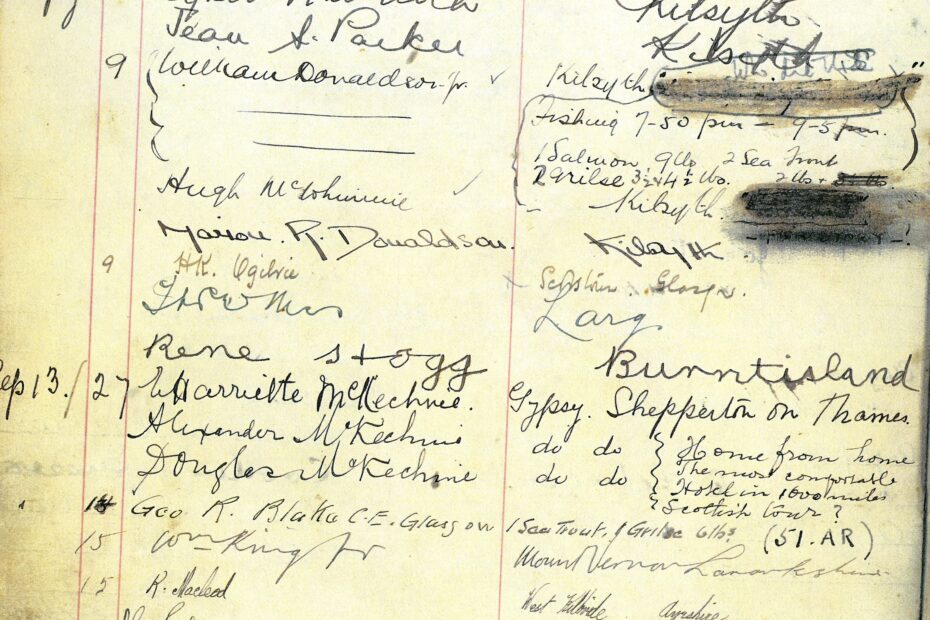 Kilsyth
Jean S. Parker
9 William Donaldson Jr. Kilsyth
Fishing 7-50 pm - 9-5 pm.
1 Salmon 9 lbs 2 Sea Trout
2 Grilse 3½ + 4½ lbs. 2 lbs +
Hugh Kilsyth
Marion. R. Donaldson. Kilsyth
9 H.K. Ogilvie
Larg
Rene Stogg Burntisland
Sep 13/27 Harriette McKechnie. Gypsy. Shepperton on Thames.
Alexander McKechnie do do Home from home
The most comfortable
Douglas McKechnie do do Hotel in 1000 miles
Scottish tour?
14 Geo R. Blake C.E. Glasgow 1 Sea Trout, 1 Grilse 6 lbs (51.AR)
15 Wm King Jr Mount Vernon Lanarkshire
15 R. Macleod West Kilbride Ayrshire